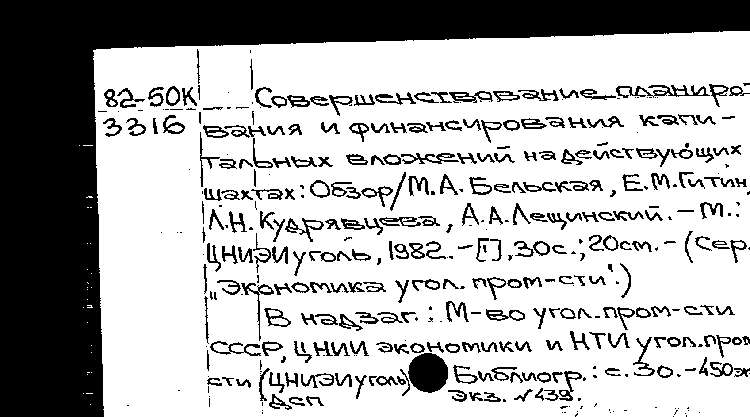 82-50К Совершенствование планиро-
3316 вания и финансирования капи-
тальных вложений на действующих
шахтах: Обзор/М.А. Бельская, Е.М. Гитин,
Л.Н. Кудрявцева, А.А. Лещинский. – М.:
ЦНИЭИуголь, 1982. – [], 30с.; 20см. – (Сер.
„Экономика угол. пром-сти".)
В надзаг.: М-во угол. пром-сти
СССР, ЦНИИ экономики и НТИ угол. пром-
сти (ЦНИЭИуголь) Библиогр.: с. 30. – 450эк
ДСП экз. №439.